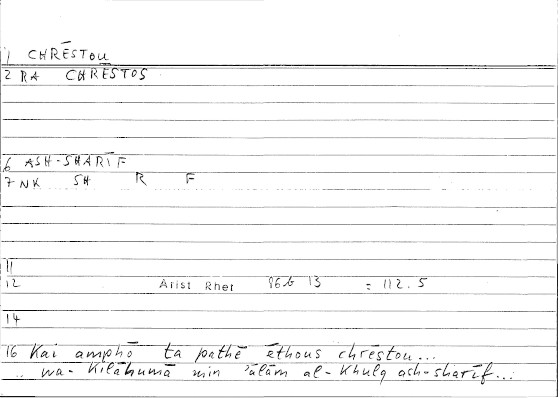 1 CHRĒSTOU
2 RA CHRĒSTOS
6 ASH-SHARĪF
7 NK SH R F
11
12 Arist Rhet 86b 13 = 112.5
14
16 Kai amphō ta pathē ēthous chrēstou...
.. wa-Kilāhumā min 'ālām al-Khulq ash-sharīf...